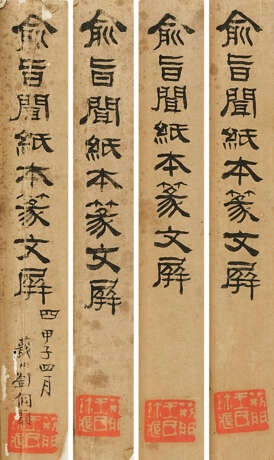 俞旨聞紙本篆文屏
俞旨聞紙本篆文屏
俞旨聞紙本篆文屏
俞旨聞紙本篆文屏 四
甲子四月